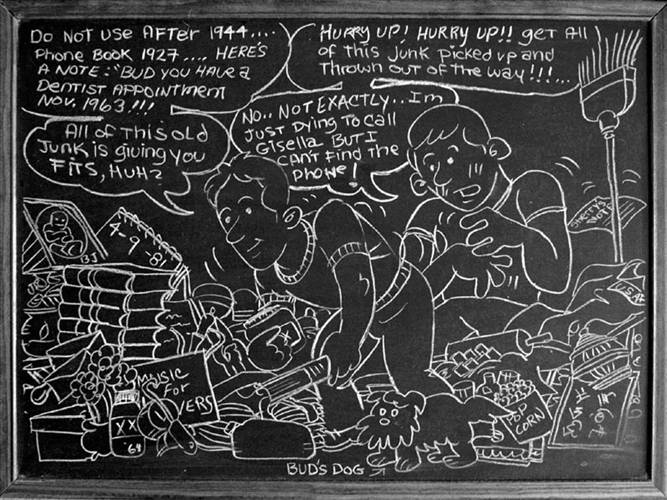 DO NOT USE AFTER 1944....
Phone BOOK 1927.... HERE'S
A NOTE: "BUD YOU HAVE a
DENTIST APPOINTMENT
NOV. 1963!!!
HURRY UP! HURRY UP!! get All
of this Junk picked up and
Thrown out of the way!!!...
All of This old
Junk is giving you
FITS, HUH?
NO.. NOT EXACTLY.. I'm
JUST DYING TO CALL
Gisella BUT I
CAN'T Find the
phone!
4-9-81
BJ
MUSIC
FOR
YERS
XX
64
POP
CORN
BUD'S DOG